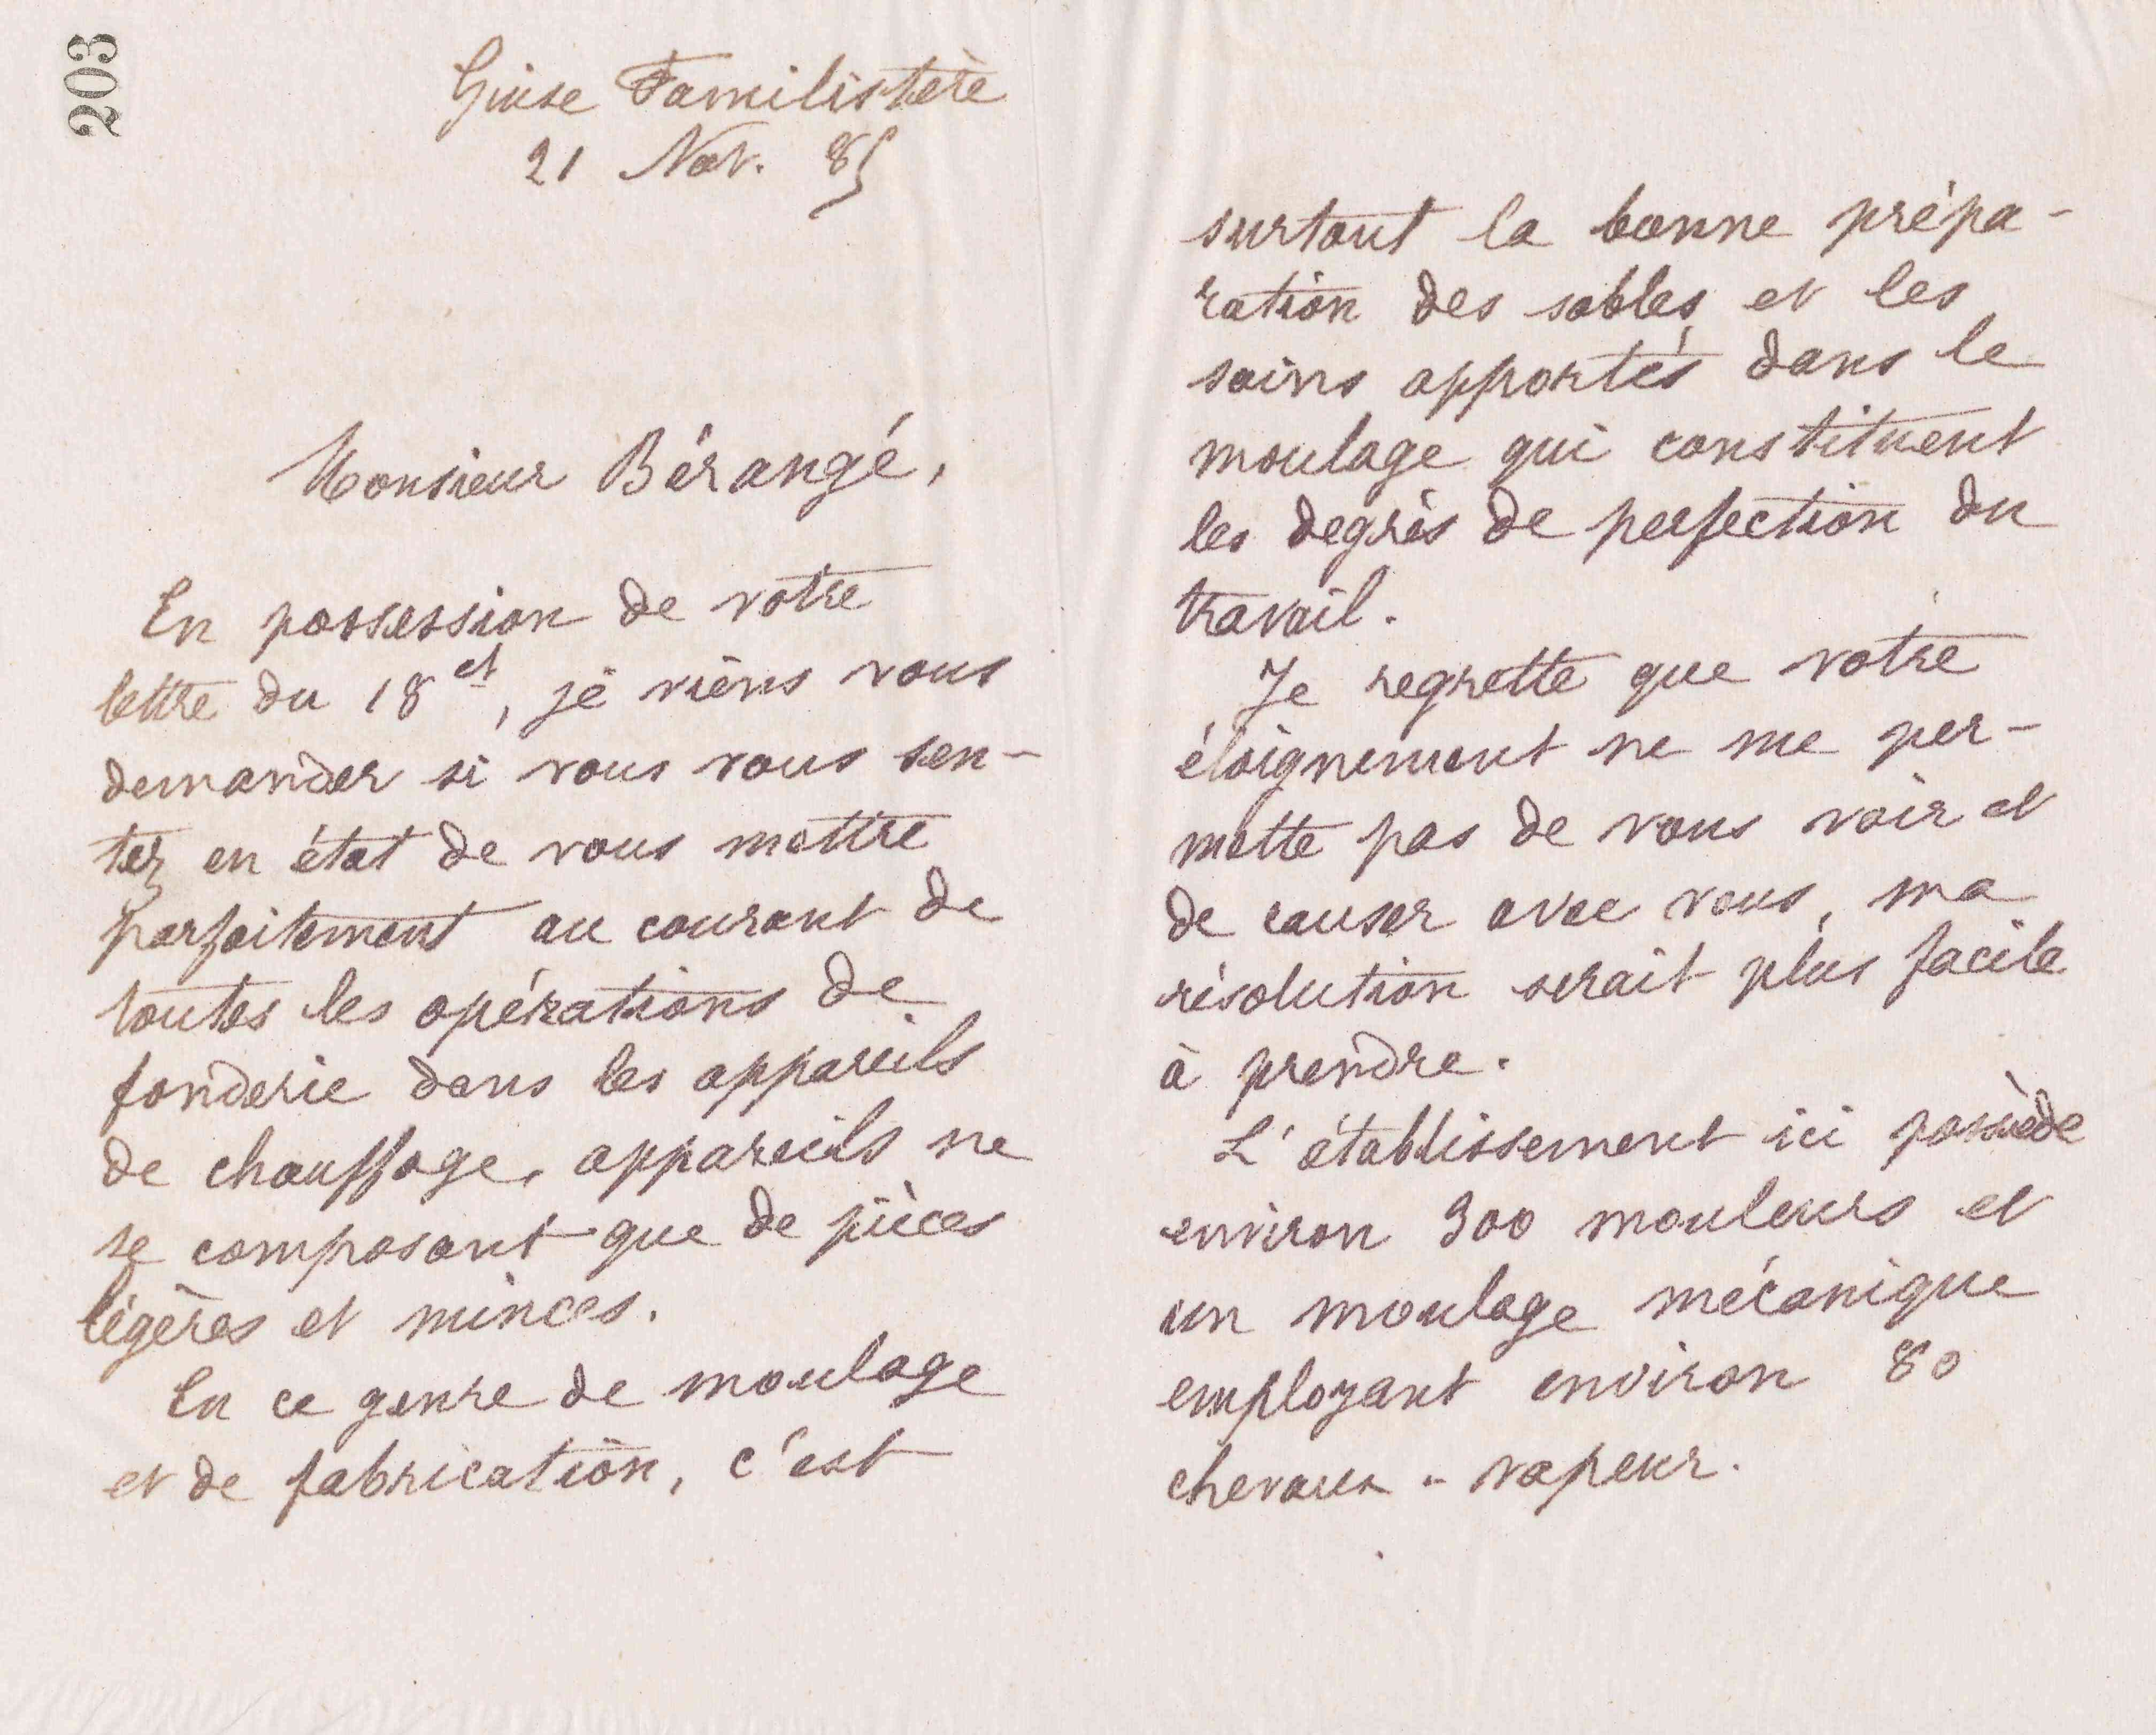 203
Guise Familistère
21 Nov. 85
Monsieur Bérangé,
En possession de votre
lettre du 18 ct, je viens vous
demander si vous vous sen-
tez en état de vous mettre
parfaitement au courant de
toutes les opérations de
fonderie dans les appareils
de chauffage, appareils ne
se composant que de pièces
légères et minces.
En ce genre de moulage
et de fabrication, c'est
surtout la bonne prépa-
ration des sables et les
soins apportés dans le
moulage qui constituent
les degrés de perfection du
travail.
Je regrette que votre
éloignement ne me per-
mette pas de vous voir et
de causer avec vous, ma
résolution serait plus facile
à prendre.
L'établissement ici possède
environ 300 mouleurs et
un moulage mécanique
employant environ 80
chevaux-vapeur.